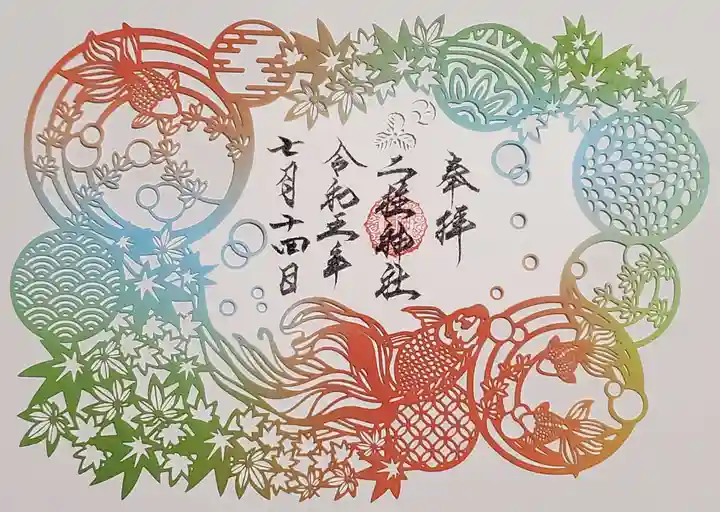 奉拝
二柱神社
令和五年
七月十四日